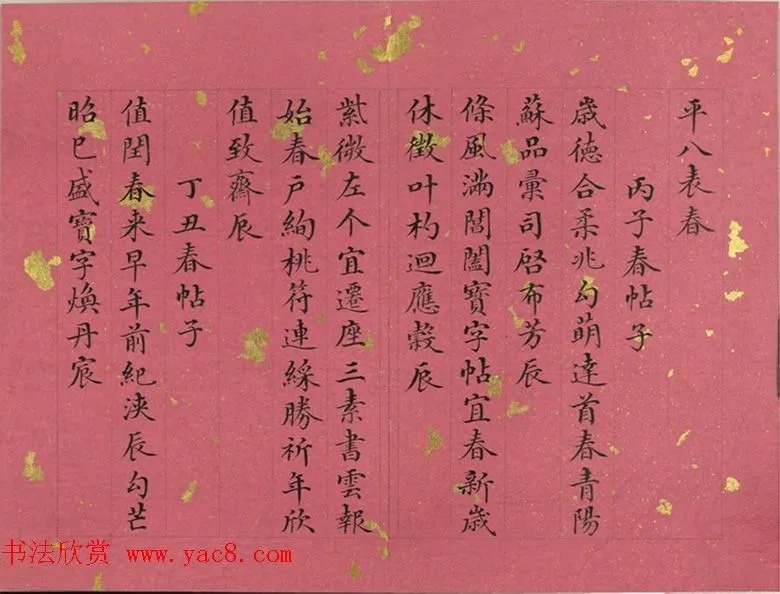 平八表春
丙子春帖子
歲德合柔兆勾萌達首春青陽
蘇品彙司啓布芳辰
條風滿閶闔寶字帖宜春新歲
休徵叶杓迴應穀辰
紫微左个宜遷座三素書雲報
始春戶絢桃符連綵勝祈年欣
值致齋辰
丁丑春帖子
值閏春来早年前紀浹辰勾芒
昭已盛寶字煥丹宸
书法欣赏 www.yac8.com